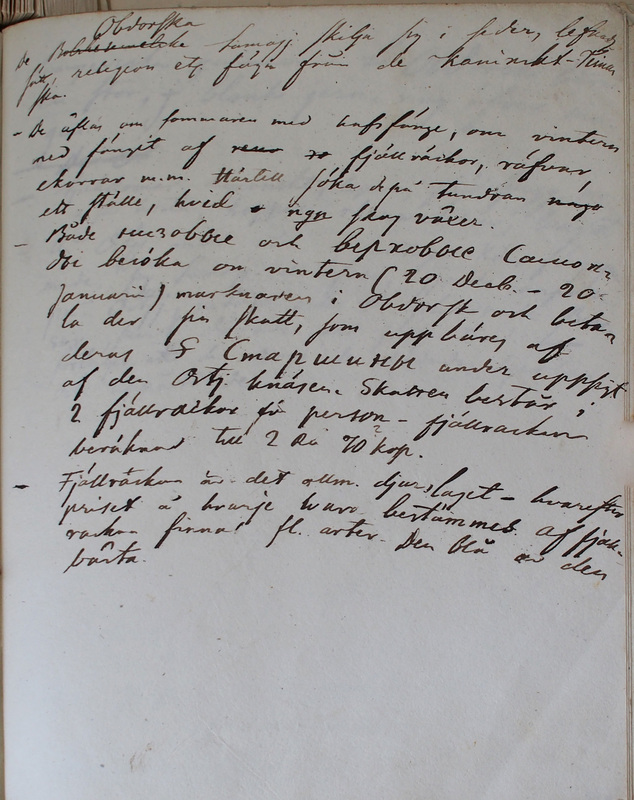 Obdorfska
De Samoj. skilja sig i seder, lefnads
sätt, religion etc. föga från de Kaninskt-Timan
ska.
- De äflas om sommaren med hafsfånge, om vintern
med fångst af fjällräckor, räfvar
ekorrar m.m. söka de på tundran något
ett ställe, hvid ngn skog växer.
- Både низовые och верховые Самои-
ди besöka om vintern (20 Decb. - 20
Januarii) marknaden i Obdorsk och beta-
la der sin skatt, som uppbäres af
deras 5 Старшины under uppsigt
af den Ostj. knäsen. Skatten består i
2 fjällräckor för person - fjällräckan
beräknad till 2 Ru 70 kop.
- Fjällräckan är det allm. djurslaget - hvarefter
priset å hvarje vara bestämmes. af fjäll-
räckan finnas fl. arter. Den blå är den
bästa.